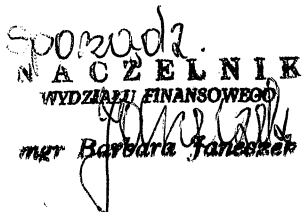 sporządz.
NACZELNIK
WYDZIAŁU FINANSOWEGO
mgr Barbara Janeczek